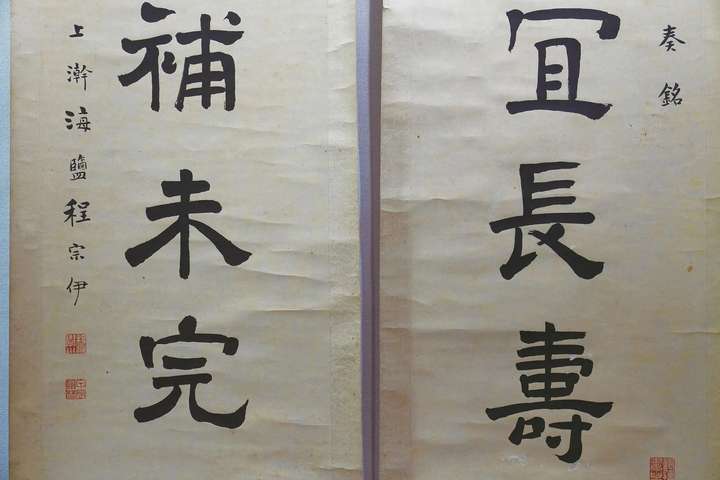 奏銘
宜長壽
補未完
上澣海鹽程宗伊